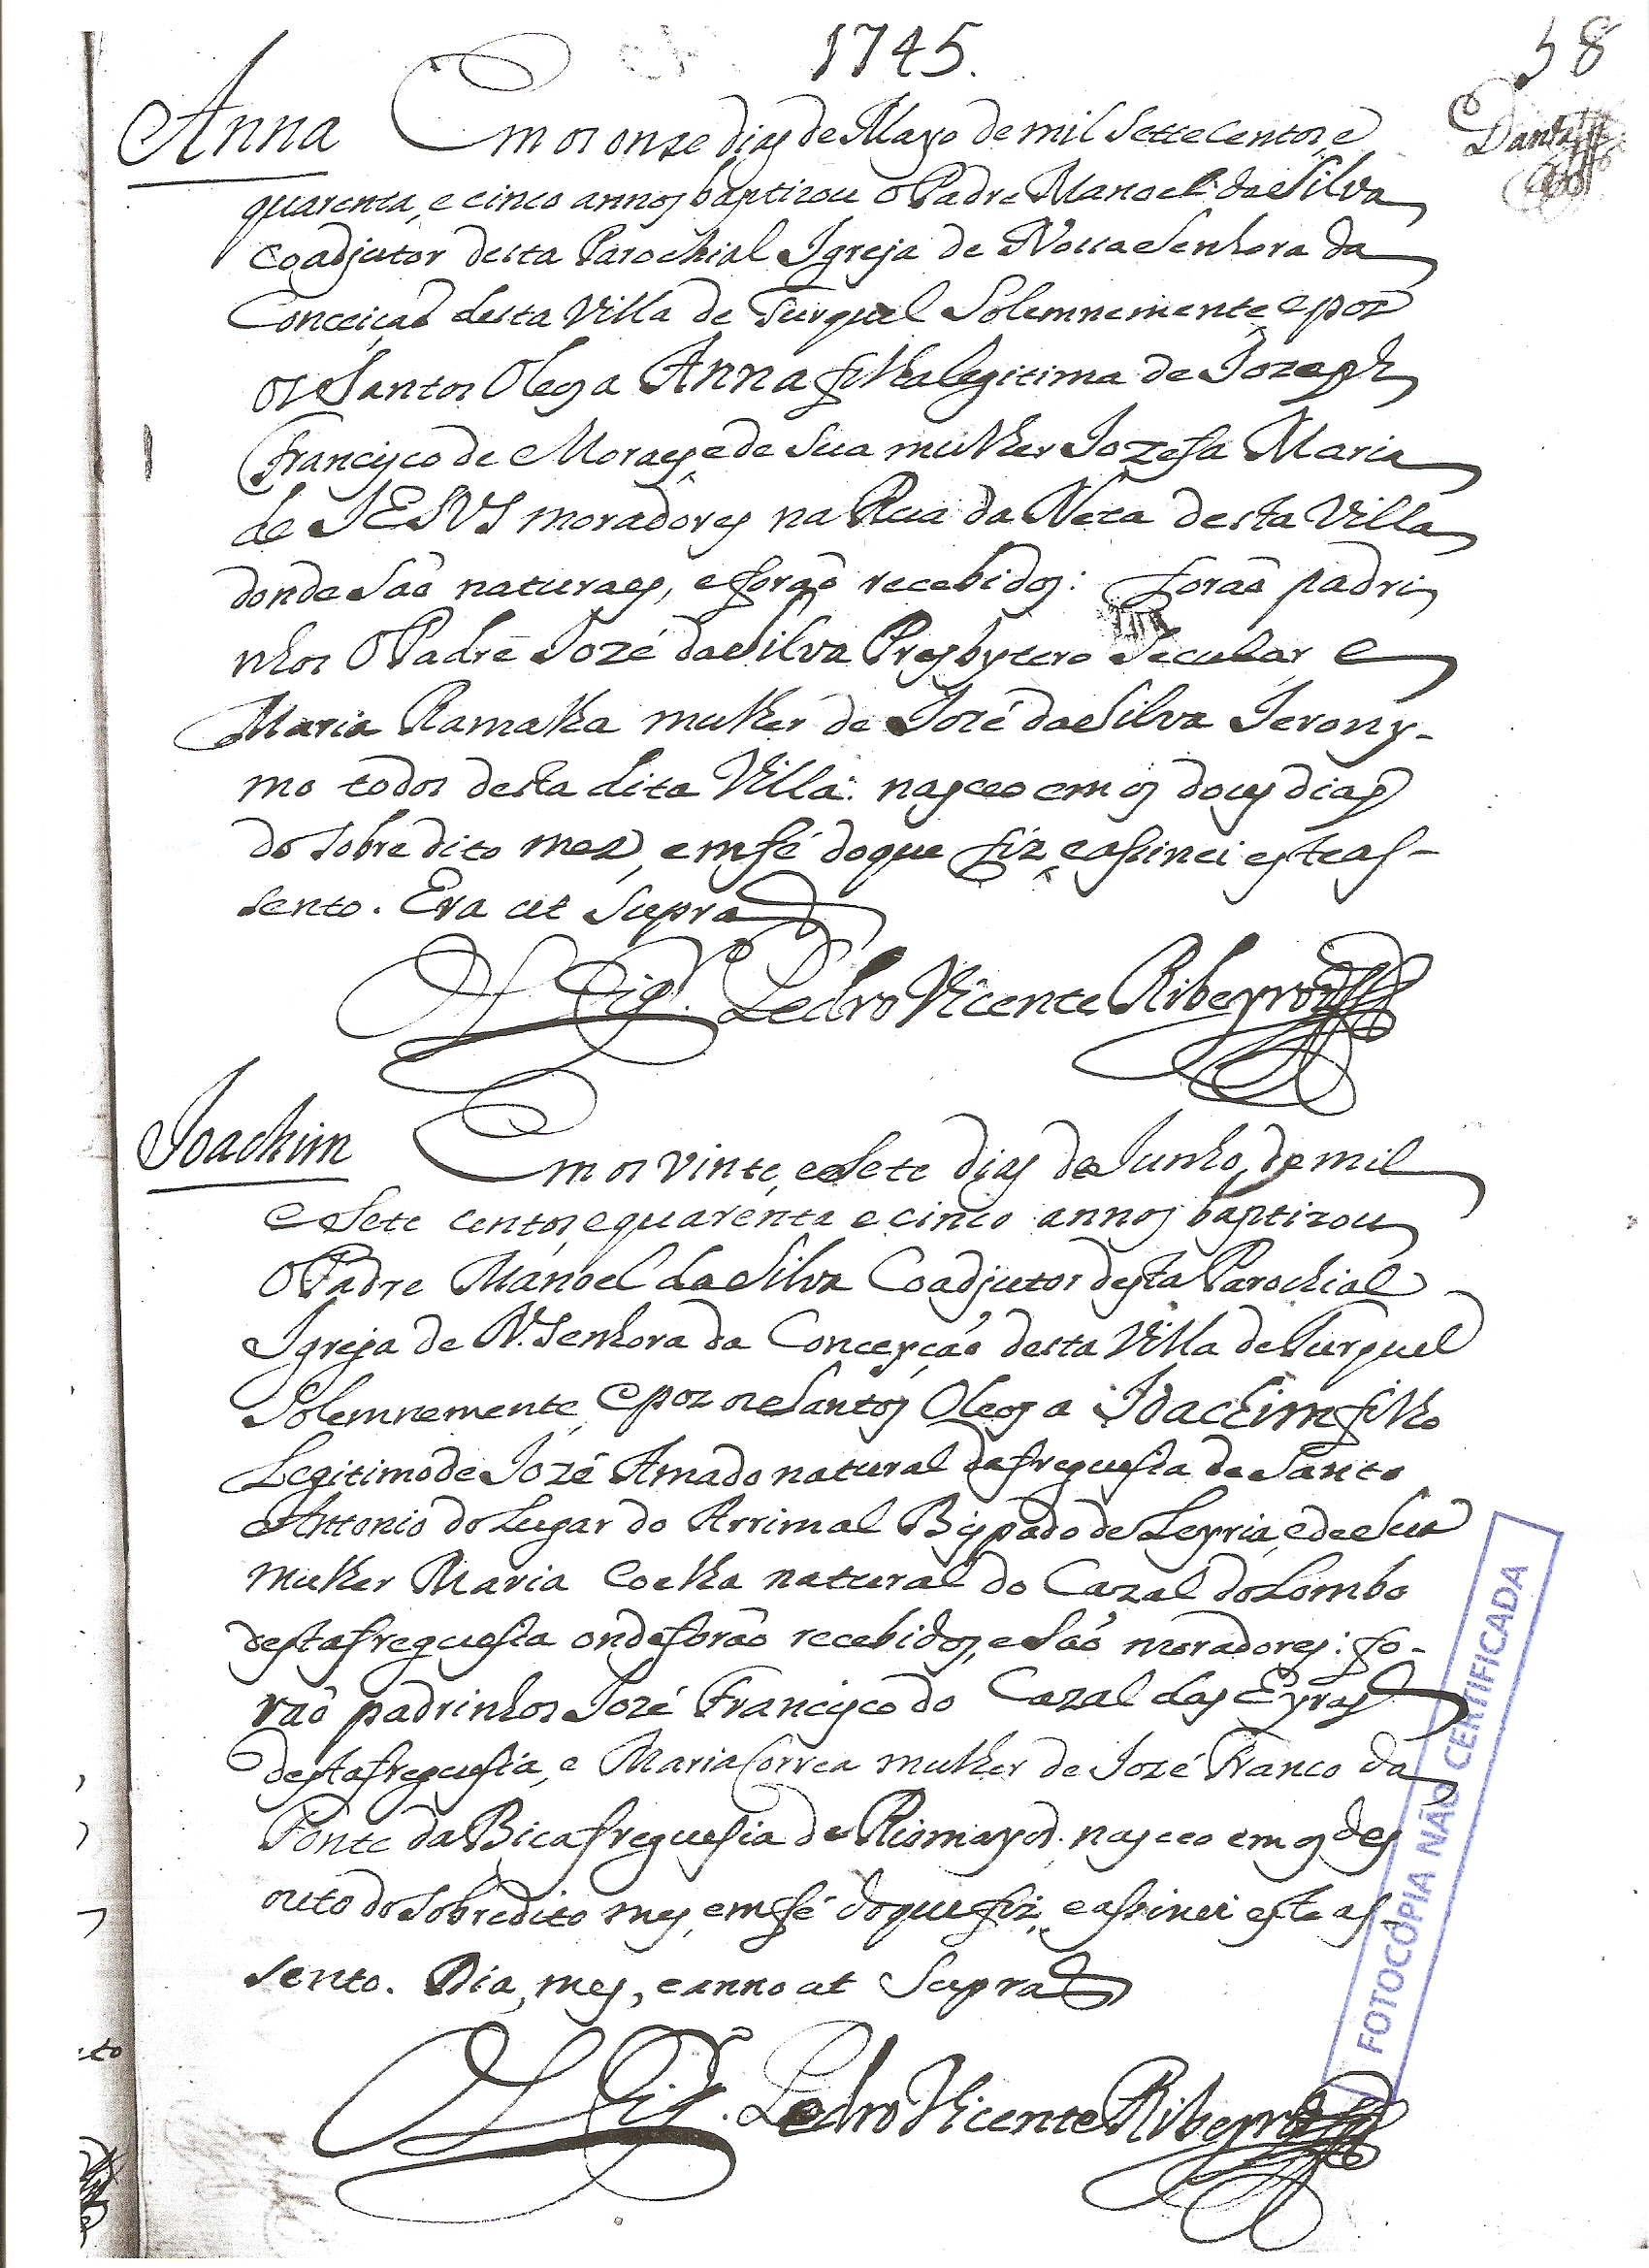 1745.
58
Dantas
Anna
Em os onze dias de Mayo de mil Settecentos, e
quarenta, e cinco annos baptizou o Padre Manoel da Silva
Coadjutor desta Parochial Igreja de Nossa Senhora da
Conceiçaõ desta Villa de Turquel Solemnemente, e poz
os Santos Oleos a Anna filha legitima de Jozeph
Francisco de Moraes, e de sua mulher Jozefa Maria
de JESVS moradores na Rua da Neta desta Villa
donde Saõ naturaes, e foraõ recebidos: foraõ padri
nhos o Padre Jozé da Silva Presbytero Secular e
Maria Ramalha mulher de Jozé da Silva Jerony-
mo todos desta dita Villa: nasceo em os dous dias
do sobredito mes, em fé do que fiz, e assinei este as-
sento. Era ut Supra
O Vigr.º Pedro Vicente Ribeyro
Joachim
Em os vinte, e Sete dias de Junho, de mil
e Sete centos, e quarenta e cinco annos baptizou
o Padre Manoel da Silva Coadjutor desta Parochial
Igreja de N. Senhora da Conceyçaõ desta Villa de Turquel
Solemnemente, e poz os Santos Oleos a Joachim filho
Legitimo de Jozé Amado natural da freguesia de Santo
Antonio do Lugar do Arrimal Bispado de Leyria, e de Sua
mulher Maria Coelha natural do Cazal do Lombo
desta freguesia onde foraõ recebidos, e Saõ moradores: fo-
raõ padrinhos Jozé Francisco do Cazal das Eyras
desta freguesia, e Maria Correa mulher de Jozé Franco da
Ponte da Bica freguesia de Riomayor. nasceo em os des
outo do Sobredito mes, em fé do que fiz, e assinei este as-
sento. Dia, mes, e anno ut Supra
O Vigr.º Pedro Vicente Ribeyro
FOTOCÓPIA NÃO CERTIFICADA